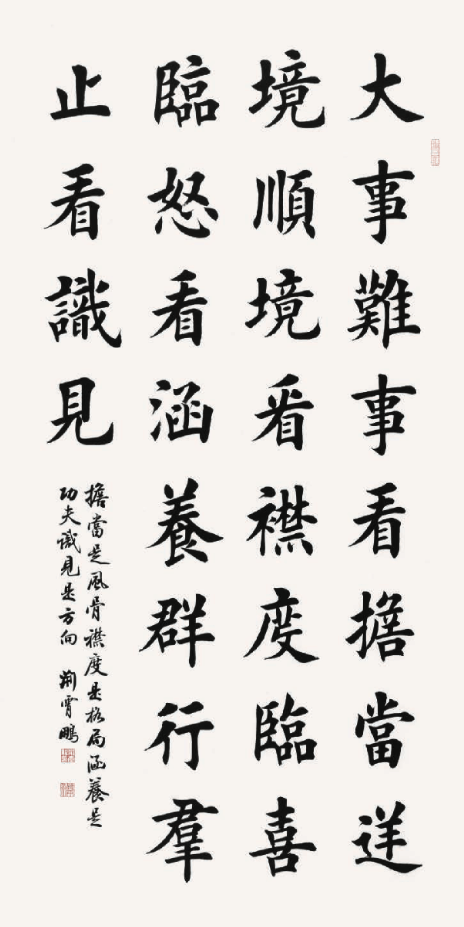 大事難事看擔當逆
境順境看襟度臨喜
臨怒看涵養群行羣
止看識見
擔當是風骨襟度是格局涵養是
功夫識見是方向 荊霄鵬